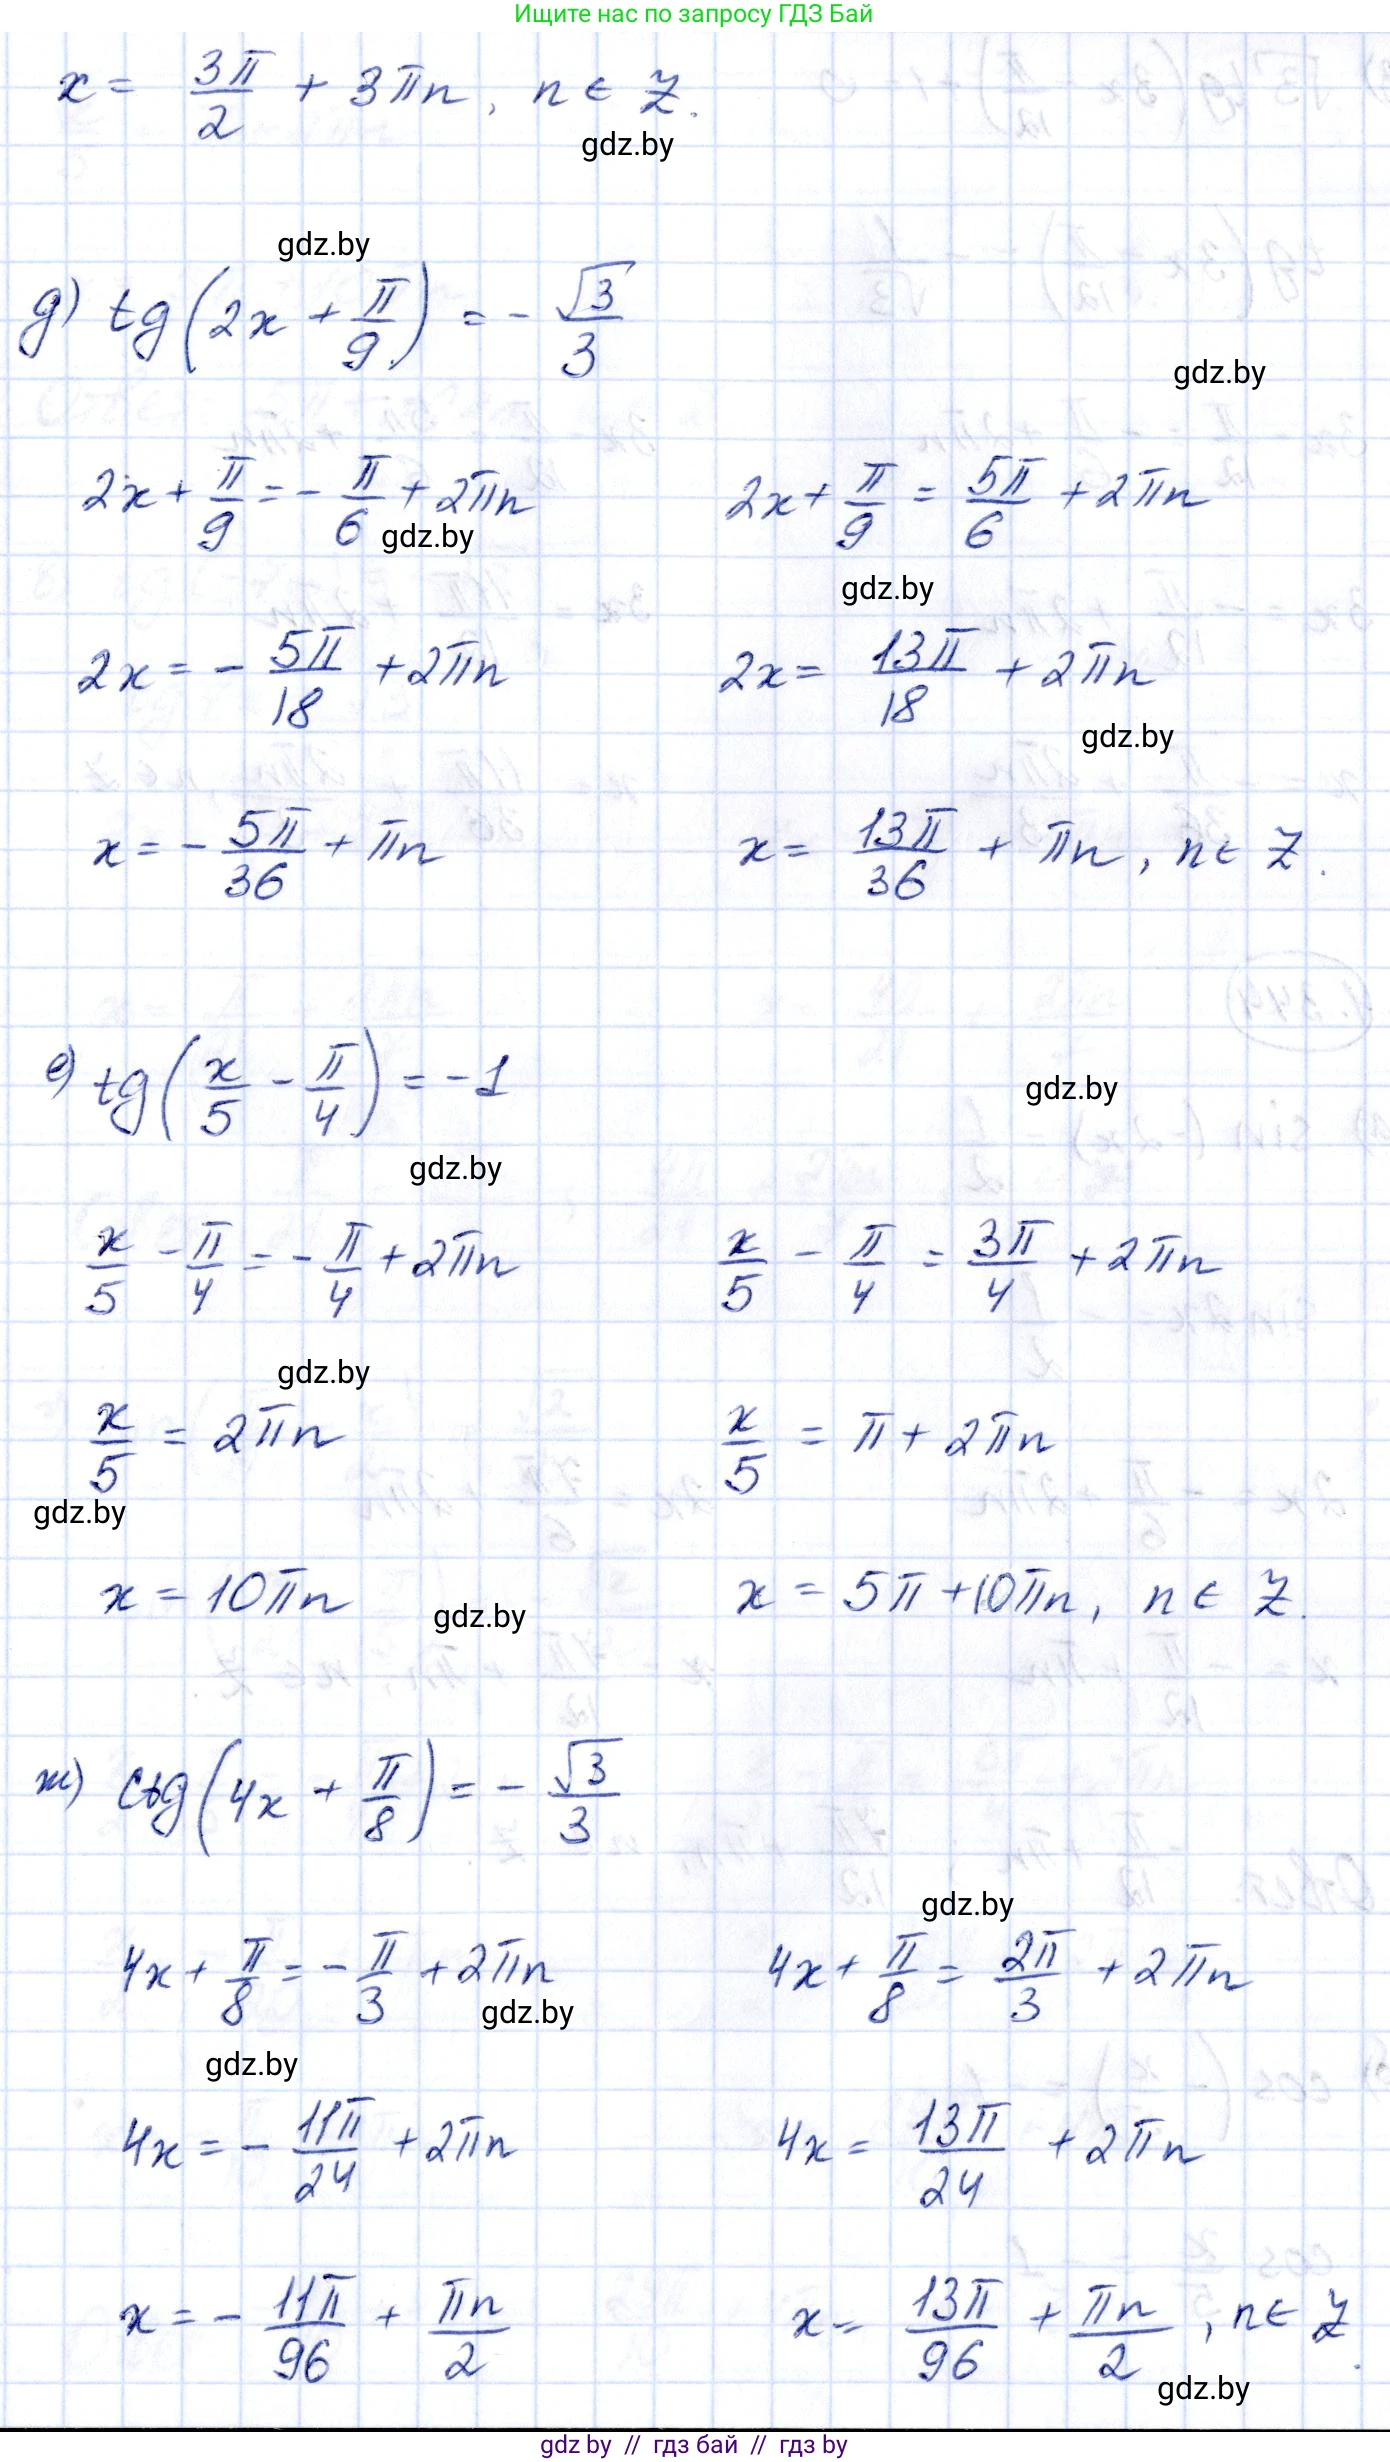 Ищите нас по запросу ГДЗ Бай
x = 3π/2 + 3πn, n ∈ Z.
gdz.by
gdz.by
д) tg(2x + π/9) = - √3/3
gdz.by
2x + π/9 = - π/6 + 2πn 2x + π/9 = 5π/6 + 2πn
gdz.by
gdz.by
2x = - 5π/18 + 2πn 2x = 13π/18 + 2πn
gdz.by
x = - 5π/36 + πn x = 13π/36 + πn, n ∈ Z.
е) tg(x/5 - π/4) = -1
gdz.by
gdz.by
x/5 - π/4 = - π/4 + 2πn x/5 - π/4 = 3π/4 + 2πn
gdz.by
x/5 = 2πn x/5 = π + 2πn
gdz.by
x = 10πn x = 5π + 10πn, n ∈ Z.
gdz.by
ж) ctg(4x + π/8) = - √3/3
gdz.by
4x + π/8 = - π/3 + 2πn 4x + π/8 = 2π/3 + 2πn
gdz.by
gdz.by
4x = - 11π/24 + 2πn 4x = 13π/24 + 2πn
x = - 11π/96 + πn/2 x = 13π/96 + πn/2, n ∈ Z.
gdz.by
gdz by // гдз бай // гдз by